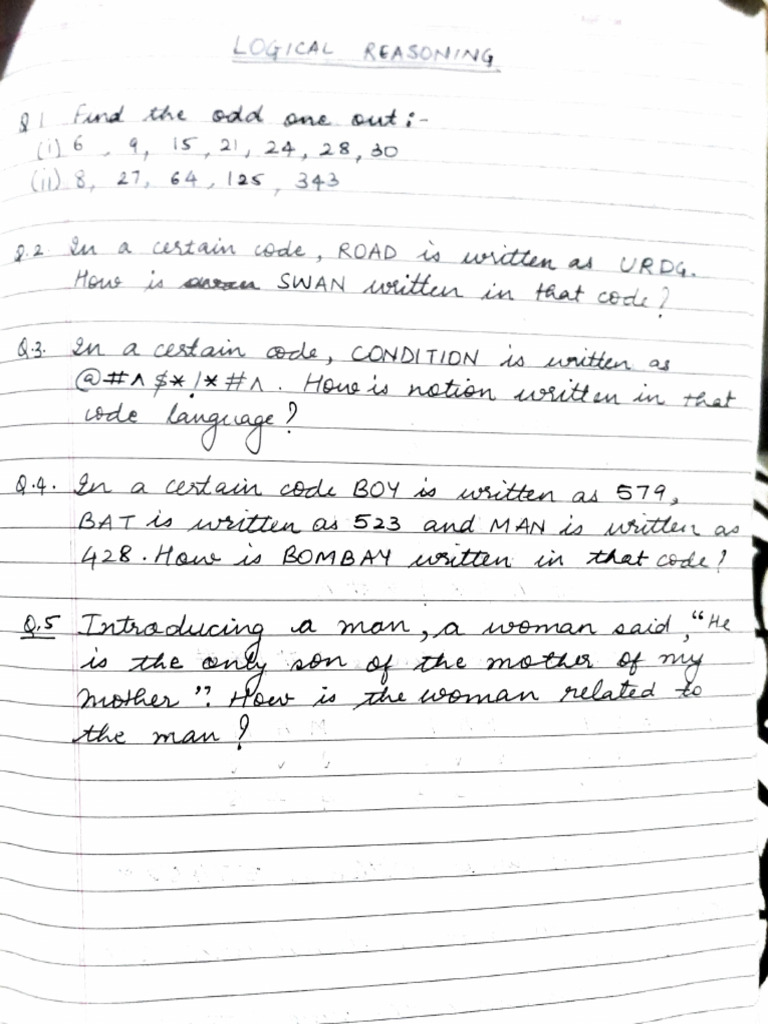 LOGICAL REASONING
Q1 Find the odd one out :-
(i) 6, 9, 15, 21, 24, 28, 30
(ii) 8, 27, 64, 125, 343
Q.2. In a certain code, ROAD is written as URDG.
How is SWAN written in that code?
Q.3. In a certain code, CONDITION is written as
@#^$*!*#^. How is notion written in that
code language?
Q.4. In a certain code BOY is written as 579,
BAT is written as 523 and MAN is written as
428. How is BOMBAY written in that code?
Q.5 Introducing a man, a woman said, "He
is the only son of the mother of my
mother". How is the woman related to
the man?